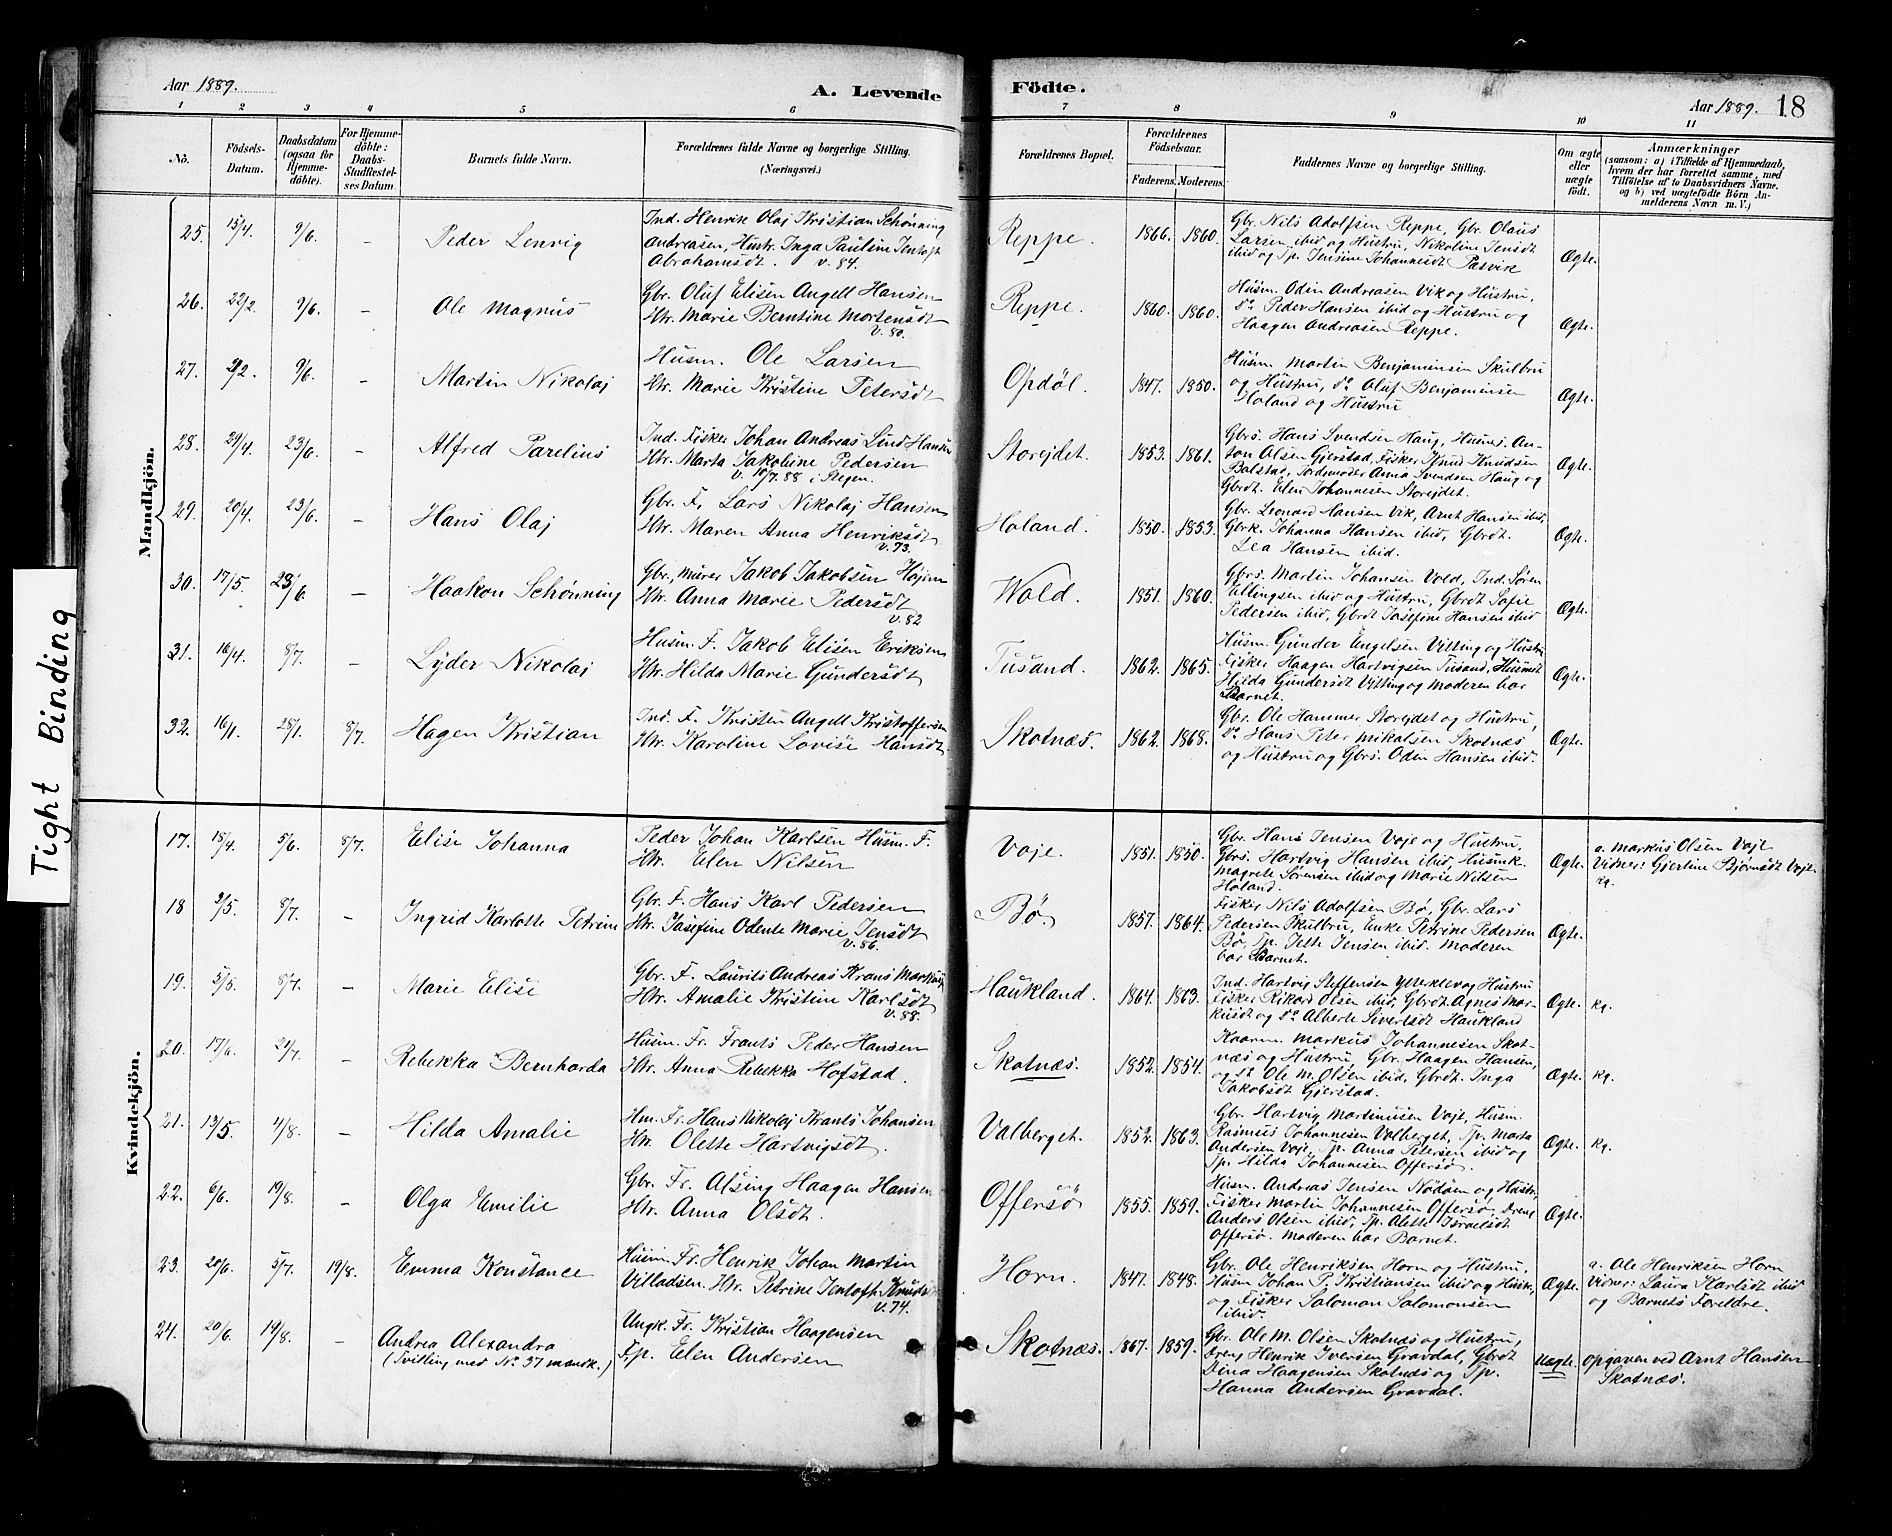 Aar 1889.
A. Levende
Födte.
Aar 1889.
18
1 2 3 4 5 6 7 8 9 10 11
No.
Födsels-
Datum.
Daabsdatum
(ogsaa for
Hjemme-
döbte).
For Hjemme-
döbte:
Daabs-
Stadfæstel-
ses Datum.
Barnets fulde Navn.
Forældrenes fulde Navne og borgerlige Stilling.
(Næringsvei.)
Forældrenes Bopæl.
Forældrenes
Födselsaar.
Faderens. Moderens.
Faddernes Navne og borgerlige Stilling.
Om ægte
eller
uægte
födt.
Anmærkninger
(saasom: a) i Tilfælde af Hjemmedaab,
hvem der har forrettet samme, med
Tilföielse af to Daabsvidners Navne,
og b) ved uægtefödte Börn An-
melderens Navn m. V.)
Tight Binding
Mandkjön.
25. 15/4. 9/6. – Peder Lenvig
Ind. Henrik Olaj Kristian Schønning
Andreasen, Hustr. Inga Pauline Jentoft
Abrahamsdt. v. 84.
Reppe. 1866. 1860.
Gbr. Nils Adolfsen Reppe, Gbr. Olaus
Larsen ibid og Hustru, Nikoline Jensdt
ibid og Tp. Jensine Johannesdt Pæsvik
Ægte.
26. 22/2. 9/6. – Ole Magnus
Gbr. Oluf Elisen Angell Hansen
Htr. Marie Berntine Mortensdt
v. 80.
Reppe. 1860. 1860.
Husm. Odin Andreasen Vik og Hustru,
do Peder Hansen ibid og Hustru og
Haagen Andreasen Reppe.
Ægte.
27. 2/2. 9/6. – Martin Nikolaj
Husm. Ole Larsen
Htr. Marie Kristine Petersdt
Opdøl. 1847. 1850.
Husm. Martin Benjaminsen Skulbru
og Hustru, do Oluf Benjaminsen
Holand og Hustru
Ægte.
28. 29/4. 23/6. – Alfred Parelius
Ind. Fisker Johan Andreas Lind Hansen
Htr. Marta Jakobine Pedersen
v. 10/7. 88 i Stegen.
Storejdet. 1853. 1861.
Gbrs. Hans Svendsen Haug, Husms. An-
ton Olsen Gjerstad, Fisker Knud Knudsen
Balstad, Jordemoder Anna Svendsen Haug og
Gbrdt. Elen Johannesen Storejdet.
Ægte.
29. 20/4. 23/6. – Hans Olaj
Gbr. F. Lars Nikolaj Hansen
Htr. Maren Anna Henriksdt
v. 73.
Holand. 1850. 1853.
Gbr. Leonard Hansen Vik, Arnt Hansen ibid,
Gbrk. Johanna Hansen ibid, Gbrdt.
Lea Hansen ibid.
Ægte.
30. 17/5. 23/6. – Haakon Schønning
Gbr., murer Jakob Jakobsen Højem
Htr. Anna Marie Pedersdt
v. 82
Wold. 1851. 1860.
Gbrs. Martin Johansen Vold, Ind. Søren
Ellingsen ibid og Hustru, Gbrdt Sofie
Pedersen ibid, Gbrdt Josefine Hansen ibid
Ægte.
31. 16/4. 8/7. – Lyder Nikolaj
Husm. F. Jakob Elisen Eriksen
Htr. Hilda Marie Gundersdt
Tussand. 1862. 1865.
Husm. Gunder Engelsen Vitting og Hustru
Fisker Haagen Hartvigsen Tusand, Husmdt
Hilda Gundersdt Vitting og Moderen bar
Barnet.
Ægte.
32. 16/1. 28/1. 8/7. Hagen Kristian
Ind. F. Kristen Angell Kristoffersen
Htr. Karoline Lovise Hansdt
Skotnæs. 1862. 1868.
Gbr. Ole Hammer, Storejdet og Hustru,
do Hans Peter Mikalsen Skotnæs
og Hustru og Gbrs. Odin Hansen ibid.
Ægte.
Kvindekjön.
17. 18/4. 5/6. 8/7. Elise Johanna
Peder Johan Karlsen Husm. F.
Htr. Elen Nilsen
Voje. 1851. 1850.
Gbr. Hans Jensen Voje og Hustru,
Gbrs. Hartvig Hansen ibid, Husmk.
Magrete Sørensen ibid og Marie Nilsen
Holand.
Ægte.
a. Markus Olsen Vojt
Vidner: Gjertine Bjørnsdt Vojt.
kg.
18 9/5. 8/7. – Ingrid Karlotte Petrine
Gbr. F. Hans Karl Pedersen
Htr. Josefine Odente Marie Jensdt
v. 86.
Bø. 1857. 1864.
Fisker Nils Adolfsen Bø, Gbr. Lars
Pedersen Skulbru, Enke Petrine Pedersen
Bø, Tp. Jette Jensen ibid. Moderen
bar Barnet.
Ægte.
19. 5/5. 8/7. – Marie Elise
Gbr. F. Laurits Andreas Krans Markusen
Htr. Amalie Kristine Karlsdt
v. 88.
Haukland. 1864. 1863.
Ind. Hartvig Steffensen Ytterklev og Hustru
Fisker Rikard Olsen ibid, Gbrdt Agnes Mar-
kusdt og do Alberte Sivertsdt Haukland
Ægte. kg.
20. 17/6. 21/7. – Rebekka Bernharda
Husm. Fr. Frants Peder Hansen
Htr. Anna Rebekka Hofstad.
Skotnæs. 1852. 1854.
Kaarm. Markus Johannesen Skot-
næs og Hustru, Gbr. Haagen Hansen,
og do Ole M. Olsen ibid, Gbrdt. Inga
Jakobsdt Gjerstad.
Ægte. kg.
21. 13/5. 4/8. – Hilda Amalie
Hm. Fr. Hans Nikolaj Krants Johansen
Htr. Olette Hartvigsdt.
Valberget. 1852. 1863.
Gbr. Hartvig Martinusen Vojt, Husm.
Rasmus Johannesen Valberget, Tp. Marta
Andersen Voje, Tp. Anna Petersen ibid og
Tp. Hilda Johannesen Offersø.
Ægte. kg.
22. 6/6. 19/8. – Olga Emilie
Gbr. Fr. Alsing Haagen Hansen
Htr. Anna Olsdt.
Offersø 1855. 1859.
Husm. Andreas Jensen Nødøen og Hustr,
Fisker Martin Johannesen Offersø, Dreng
Anders Olsen ibid, Tp. Alette Israelsdt
Offersø. Moderen bar Barnet.
Ægte.
23. 20/6. 5/7. 19/8. Emma Konstance
Husm. Fr. Henrik Johan Martin
Villadsen. Htr. Petrine Jentoft Knudsdt
v. 74.
Horn. 1847. 1848.
Gbr. Ole Henriksen Horn og Hustru,
Husm Johan P. Kristiansen ibid og Hustr,
og Fisker Salomon Salomonsen
ibid.
Ægte.
a. Ole Henriksen Horn
Vidner: Laura Karlsdt ibid
og Barnets Foreldre.
24. 20/6. 19/8. – Andrea Alexandra
(Tvilling med No. 37 mandk.)
Ungk. Fr. Kristian Haagensen
Fp. Elen Andersen
Skotnæs. 1867. 1859.
Gbr. Ole M. Olsen Skotnæs og Hustru,
Dreng Henrik Iversen Gravdal, Gbrdt
Dina Haagensen Skotnæs og Tp.
Hanna Andersen Gravdal.
Uægte.
Opgaven ved Arnt Hansen
Skotnæs.